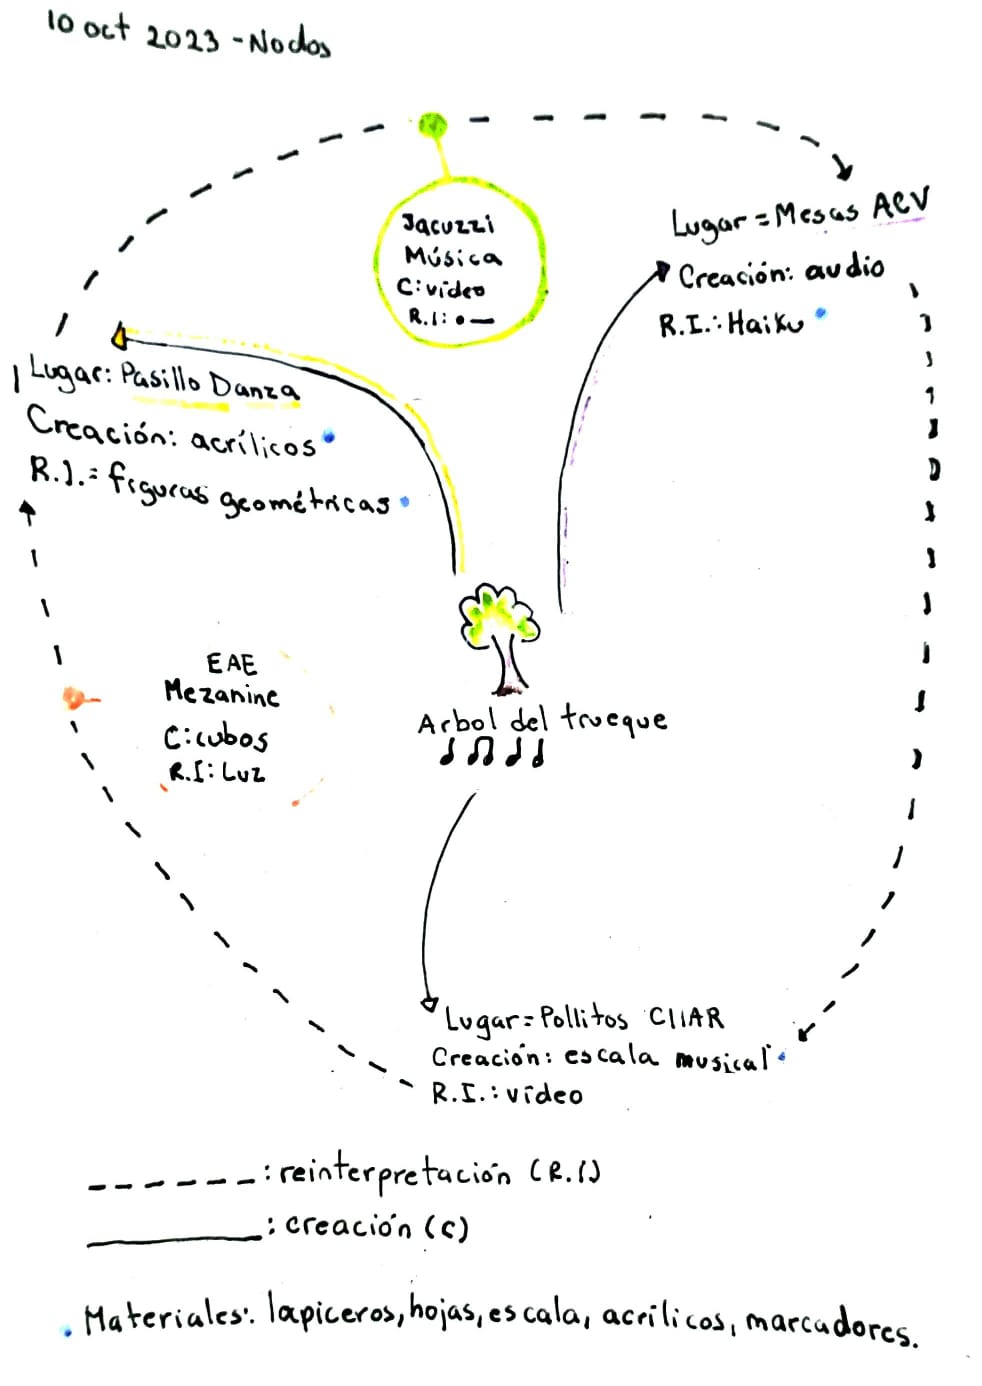 10 oct 2023 - Nodos
Jacuzzi
Música
C: video
R.I: •—
Lugar = Mesas ACV
Creación: audio
R.I.: Haiku
Lugar: Pasillo Danza
Creación: acrílicos
R.I.= figuras geométricas
EAE
Mezanine
C: cubos
R.I: Luz
Arbol del trueque
Lugar = Pollitos CIIAR
Creación: escala musical
R.I.: vídeo
------: reinterpretación (R.I)
______: creación (C)
• Materiales: lapiceros, hojas, escala, acrílicos, marcadores.